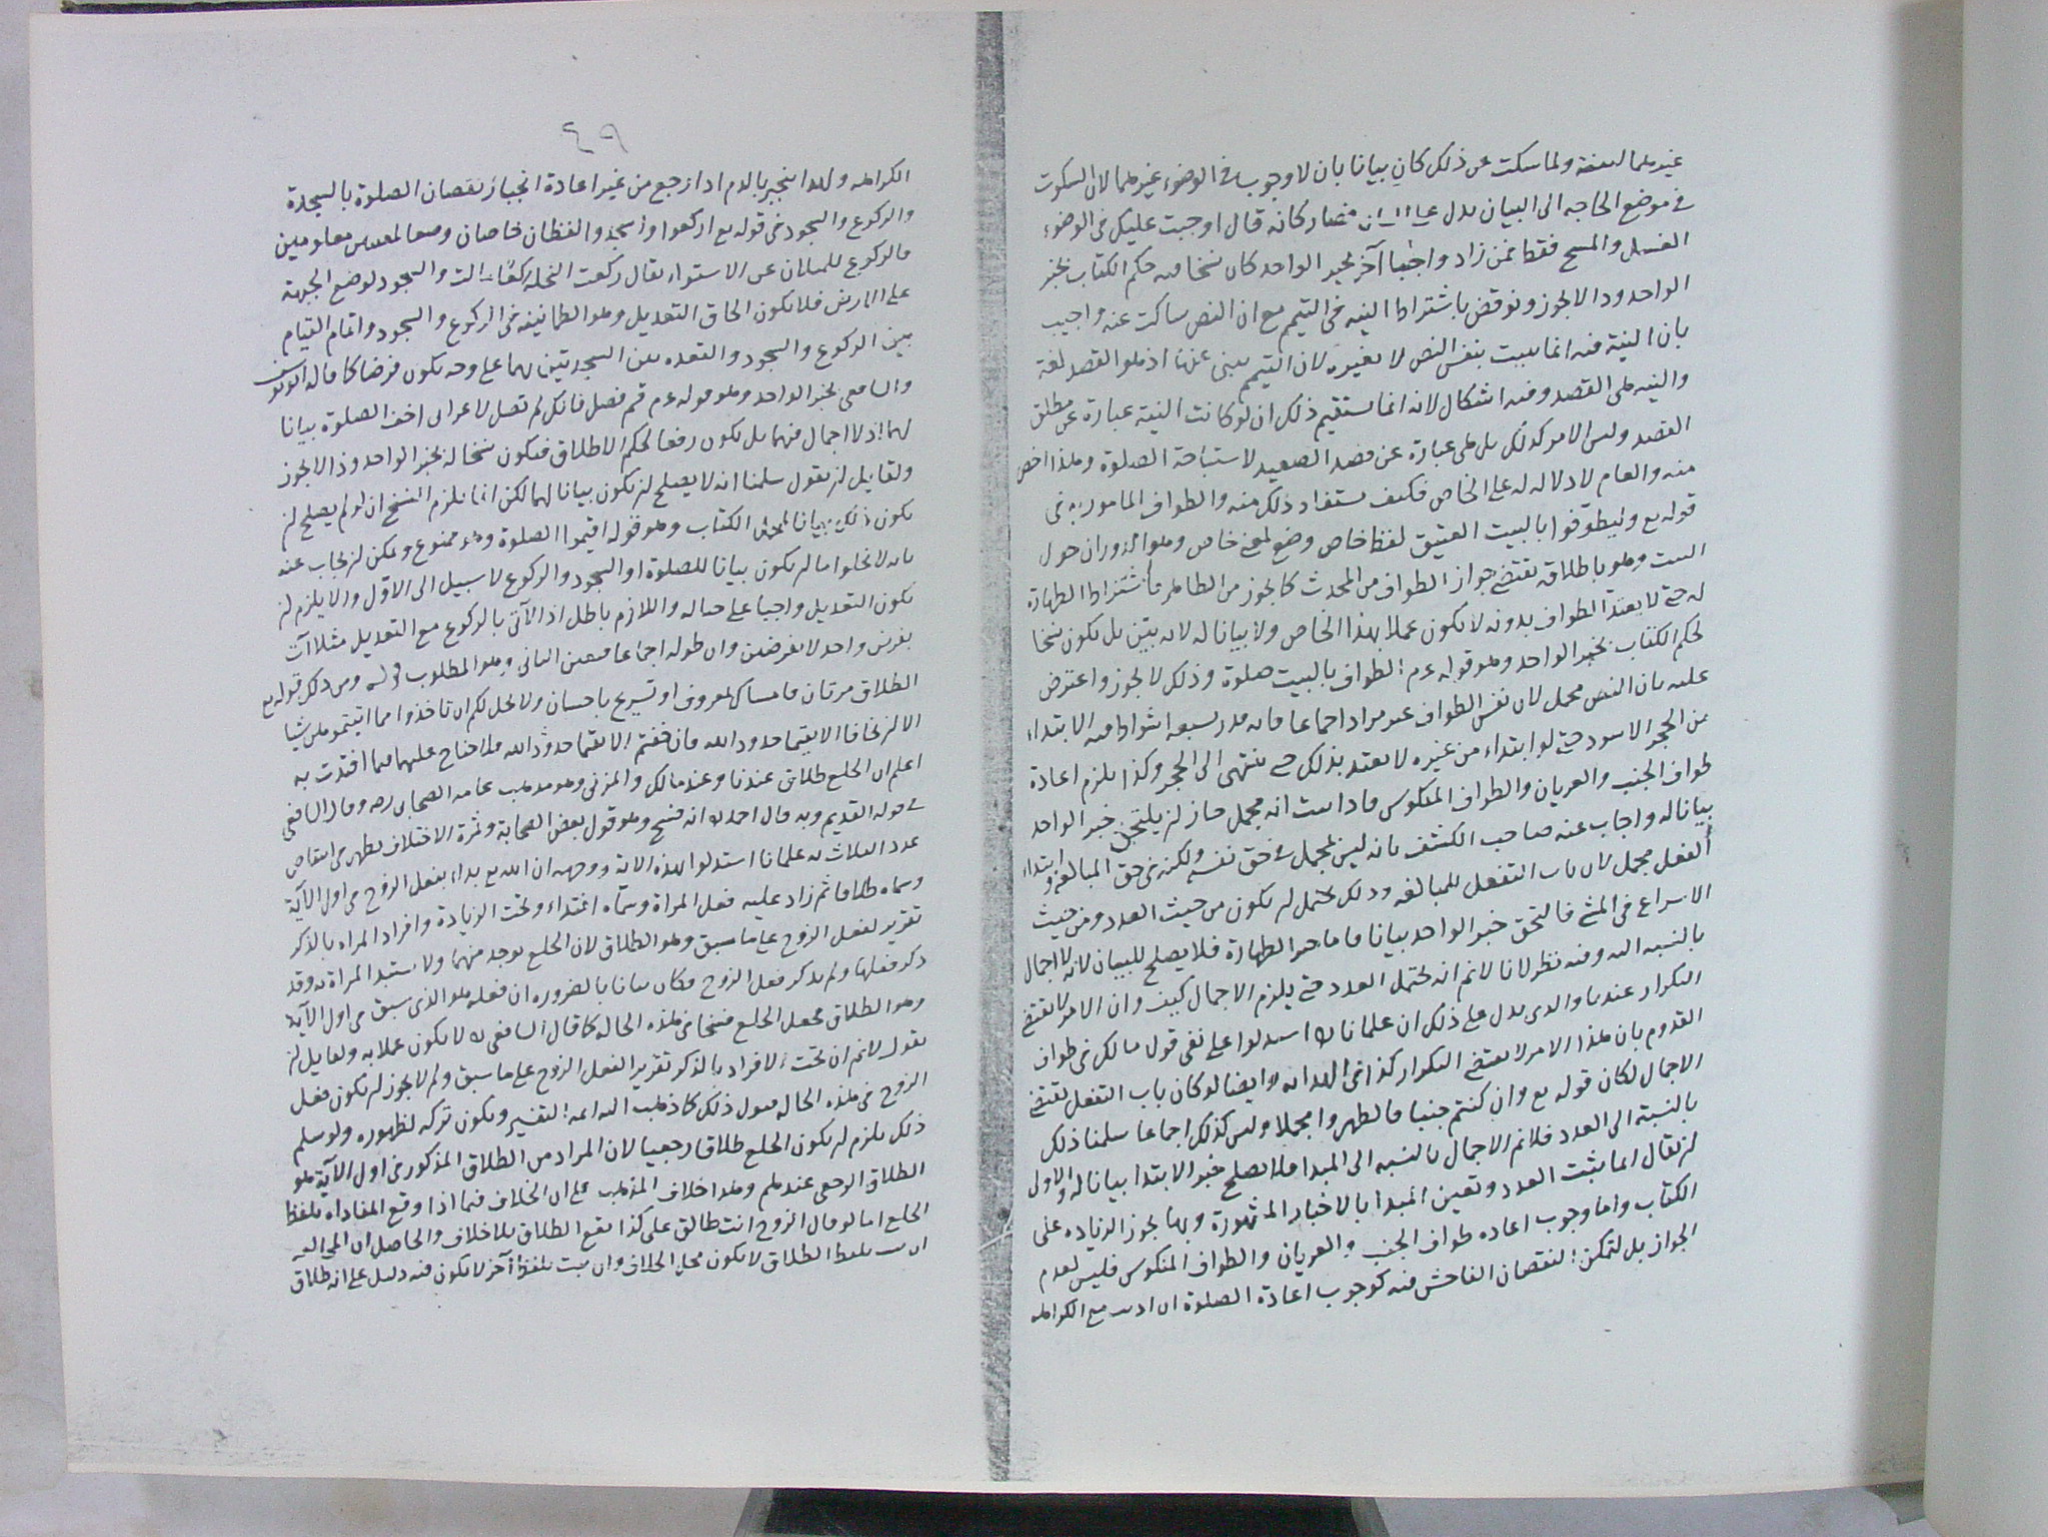 غيرهما لبينه ولما سكت عن ذلك كان بيانا بان لا وجوب في الوضوء غيرهما لان السكوت
في موضع الحاجه الى البيان يدل على فصار كانه قال اوجبت عليكم في الوضوء
الغسل والمسح فقط فمن زاد واجبا آخر بخبر الواحد كان نسخا منه حكم الكتاب بخبر
الواحد وذا لا يجوز ونوقض باشتراط النيه في التيمم مع ان النص ساكت عنه واجيب
بان النية فيه انما يثبت بنفس النص لا بغيره لان التيمم يبنى عنها اذ هو القصد لغة
والنيه هى القصد وفيه اشكال لانه انما يستقيم ذلك ان لو كانت النية عبارة عن مطلق
القصد وليس الامر كذلك بل هى عبارة عن قصد الصعيد لاستباحة الصلوة وهذا اخص
منه والعام لا دلاله له على الخاص فكيف يستفاد ذلك منه والطواف المامور به في
قوله تع وليطوفوا بالبيت العتيق لفظ خاص وضع لمعنى خاص وهو الدوران حول
البيت وهو باطلاقه يقتضي جواز الطواف من المحدث كما يجوز من الطاهر فاشتراط الطهارة
له حتى لا يعتد الطواف بدونه لا يكون عملا بهذا الخاص ولا بيانا له لانه بيّن بل يكون نسخا
لحكم الكتاب بخبر الواحد وهو قوله عم الطواف بالبيت صلوة وذلك لا يجوز واعترض
عليه بان النص مجمل لان نفس الطواف غير مراد اجماعا فانه قدر بسبعة اشواط فيه الابتداء
من الحجر الاسود حتى لو ابتداء من غيره لا يعتد بذلك حتى ينتهى الى الحجر وكذا يلزم اعادة
طواف الجنب والعريان والطواف المنكوس فاذا ثبت انه مجمل جاز لن يلتحق خبر الواحد
بيانا له واجاب عنه صاحب الكشف بانه ليس لمجمل في حق نفسه ولكنه في حق المبالغة وابتداء
الفعل مجمل لان باب التفعل للمبالغه وذلك يحتمل لن يكون من حيث العدد ومن حيث
الاسراع في المشي فالتحق خبر الواحد بيانا فاما خبر الطهارة فلا يصلح للبيان لانه لا اجمال
بالنسبه اليه وفيه نظر لانا لا نم انه يحتمل العدد حتى يلزم الاجمال كيف وان الامر لا يقتضي
التكرار عندنا والذى يدل على ذلك ان علمانا استدلوا على نفى قول مالك في طواف
القدوم بان هذا الامر لا يقتضي التكرار كذا في الهدايه وايضا لو كان باب التفعل يقتضي
الاجمال لكان قوله تع وان كنتم جنبا فاطهروا مجملا وليس كذلك اجماعا سلمنا ذلك
بالنسبة الى العدد فلا نم الاجمال بالنسبه الى المبدا فلا يصلح خبر الابتدا بيانا له والاولى
لن يقال انما يثبت العدد وتعين المبدا بالاخبار المشهورة وبها يجوز الزياده على
الكتاب واما وجوب اعاده طواف الجنب والعريان والطواف المنكوس فليس لعدم
الجواز بل لتمكن النقصان الفاحش فيه كوجوب اعادة الصلوة ان اديت مع الكراهه
٤٩
الكراهه ولهذا ينجبر بالدم اذا رجع من غير اعادة انجبار نقصان الصلوة بالسجدة
والركوع والسجود في قوله تع اركعوا واسجدوا لفظان خاصان وضعا لمعنيين معلومين
فالركوع للميلان عن الاستواء يقال ركعت النخله والسجود لوضع الجبهة
على الارض فلا يكون الحاق التعديل وهو الطمانينه في الركوع والسجود واتمام القيام
بين الركوع والسجود والقعده بين السجدتين بهما على وجه يكون فرضا كما قاله ابو يوسف
والشافعى بخبر الواحد وهو قوله عم قم فصل فانك لم تصل لاعرابى اخف الصلوة بيانا
لهما اذ لا اجمال فيهما بل يكون رفعا لحكم الاطلاق فيكون نسخا له بخبر الواحد وذا لا يجوز
ولقايل لن يقول سلمنا انه لا يصلح لن يكون بيانا لهما لكن انما يلزم النسخ ان لو لم يصلح لن
يكون ذلك بيانا لمجمل الكتاب وهو قوله اقيموا الصلوة وهو ممنوع ويمكن لن يجاب عنه
بانه لا يخلوا اما لن يكون بيانا للصلوة او السجود والركوع لا سبيل الى الاوّل والا يلزم لن
يكون التعديل واجبا على حياله واللازم باطل اذ الآتى بالركوع مع التعديل مثلا آت
بفرض واحد لا بفرضين وان طوله اجماعا فيعين الثانى وهو المطلوب قوله ومن ذلك قوله تع
الطلاق مرتان فامساك بمعروف او تسريح باحسان ولا يحل لكم ان تاخذوا مما اتيتموهن شيا
الا لن يخافا الا يقيما حدود الله فان خفتم الا يقيما حدود الله فلا جناح عليهما فيما افتدت به
اعلم ان الخلع طلاق عندنا وعند مالك والمزنى وهو مذهب عامه الصحابى رضه وقال الشافعى
في قوله القديم وبه قال احمد انه فسخ وهو قول بعض الصحابة وثمرة الاختلاف يظهر في انتقاص
عدد الثلاث به علمانا استدلوا بهذه الايه ووجهه ان الله تع بداء بفعل الزوج في اول الآية
وسماه طلاقا ثم زاد عليه فعل المراة وسماه افتداء وتحت الزيادة وافراد المراه بالذكر
تقرير لفعل الزوج على ما سبق وهو الطلاق لان الخلع يوجد منهما ولا يستبد المراة به وقد
ذكر فعلها ولم يذكر فعل الزوج فكان بيانا بالضروره ان فعله هو الذى سبق في اول الآية
وهو الطلاق فجعل الخلع فسخا في هذه الحاله كما قال الشافعى لا يكون عملا به ولقايل لن
يقول لا نم ان تحت الافراد بالذكر تقرير الفعل الزوج على ما سبق ولم لا يجوز لن يكون فعل
الزوج في هذه الحاله قبول ذلك كما ذهب اليه ائمه التفسير ويكون تركه لظهوره ولو سلم
ذلك يلزم لن يكون الخلع طلاقا رجعيا لان المراد من الطلاق المذكور في اول الآية هو
الطلاق الرجعى عندهم وهذا خلاف المذهب على ان الخلاف فيما اذا وقع المفاداه بلفظ
الخلع اما لو قال الزوج انت طالق على كذا يقع الطلاق بلا خلاف والحاصل ان
بلفظ الطلاق لا يكون محل الخلاف وان ثبت بلفظ آخر لا يكون فيه دليل على انه طلاق